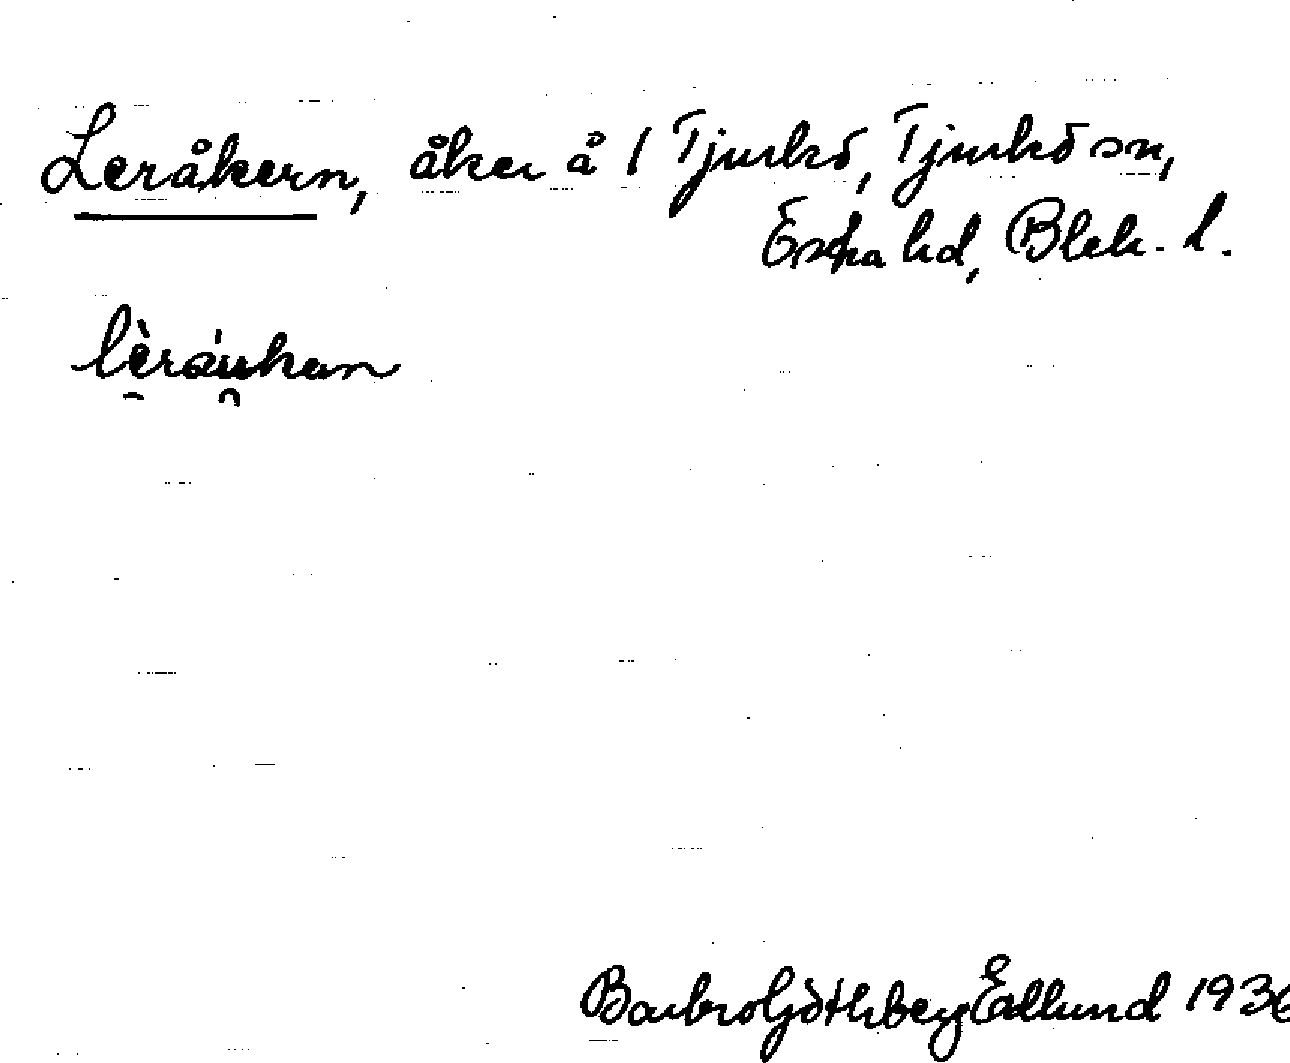 Leråkern, åker å 1 Tjurkö, Tjurkö sn,
Östra hd, Blek. l.
lèráukan
Barbro Göthberg Edlund 1936